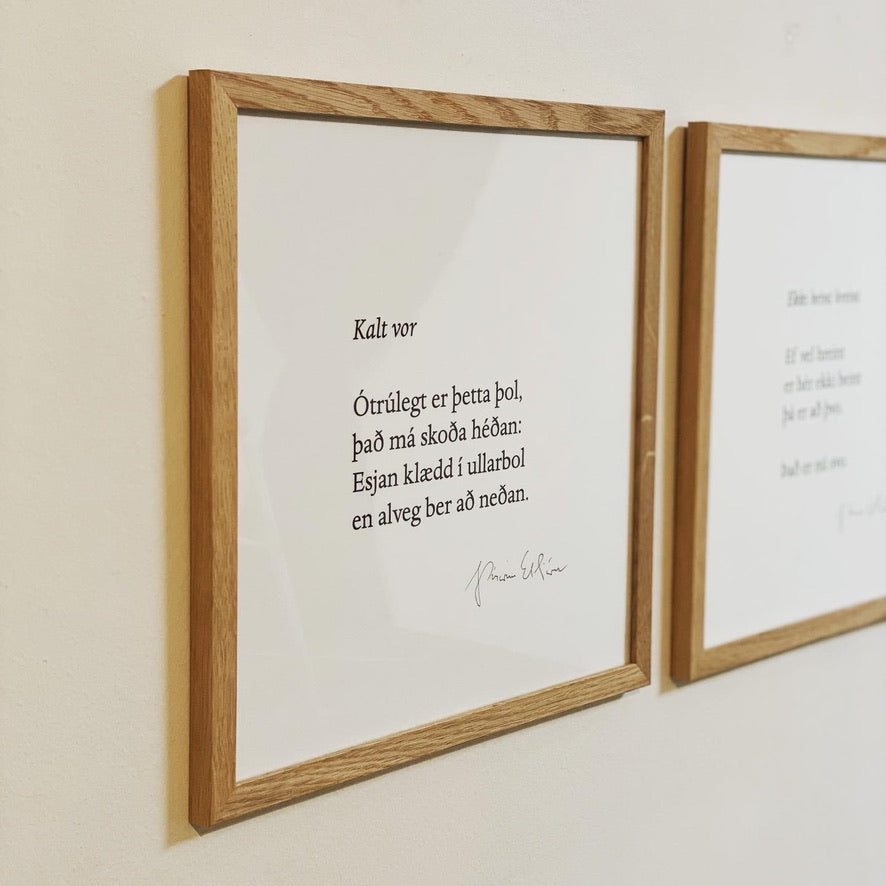 Kalt vor
Ótrúlegt er þetta þol,
það má skoða héðan:
Esjan klædd í ullarbol
en alveg ber að neðan.
Þórarinn Eldjárn
Ef vel
er hér ekki
þá er að þvo.